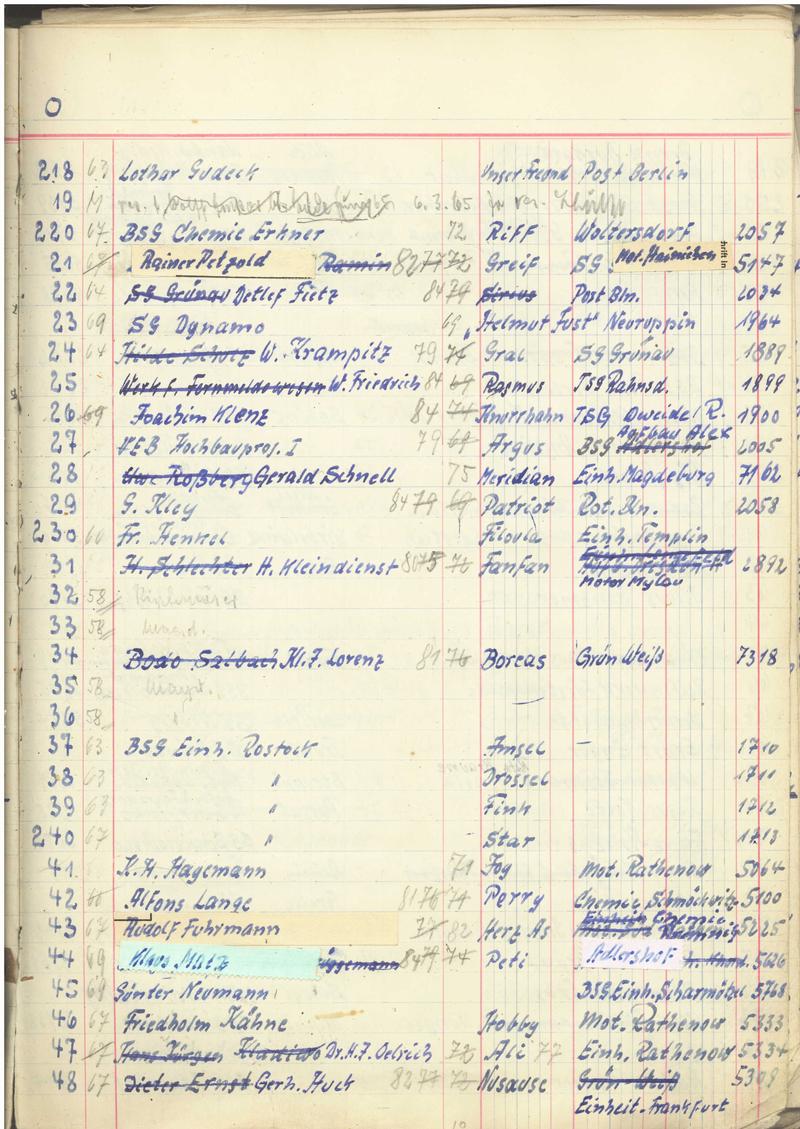 O
218 63 Lothar Gudeck Unser Freund Post Berlin
19 6.3.65
220 67 BSG Chemie Erkner 72 Riff Woltersdorf 2057
21 Rainer Petzold Ramin 82 77 72 Greif SG Mot. Hainichen hrift in 5147
22 64 SG Grünau Detlef Fietz 84 79 Sirius Post Bln. 2034
23 69 SG Dynamo 69 "Helmut Just" Neuruppin 1964
24 64 Hilde Scholz W. Krampitz 79 74 Gral SG Grünau 1889
25 Werk f. Fernmeldewesen W. Friedrich 84 69 Rasmus TSG Rahnsd. 1899
26 69 Joachim Klenz 84 74 Knurrhahn TSG R. 1900
27 VEB Hochbauproj. I 79 69 Argus BSG Adlershof Aufbau Alex 2005
28 Uwe Roßberg Gerald Schnell 75 Meridian Einh. Magdeburg 7162
29 G. Kley 84 79 69 Patriot Rot. Bln. 2058
230 60 Fr. Henkel Filovla Einh. Templin
31 H. Schlechter H. Kleindienst 80 75 72 Fanfan 2892
Motor Mylau
32 58
33 58
34 Bodo Salbach Kl. J. Lorenz 81 76 Boreas Grün Weiß 7318
35 58 —
36 58 "
37 63 BSG Einh. Rostock Amsel – 1710
38 63 " Drossel 1711
39 63 " Fink 1712
240 67 " Star 1713
41 K.H. Hagemann 71 Fog Mot. Rathenow 5064
42 66 Alfons Lange 81 76 71 Perry Chemie Schmöckwitz 5100
43 67 Rudolf Fuhrmann 77 82 Herz As Chemie 5225
44 69 Klaus Matz 84 79 74 Peti Adlershof 5626
45 69 Günter Neumann BSG Einh. Scharmützel 5768
46 67 Friedholm Kähne Hobby Mot. Rathenow 5333
47 67 Hans Jürgen Kladiwo Dr. H.J. Oelrich 72 Ali 77 Einh. Rathenow 5334
48 67 Dieter Ernst Gerh. Huck 82 77 72 Nusause Grün-Weiß 5309
Einheit-Frankfurt